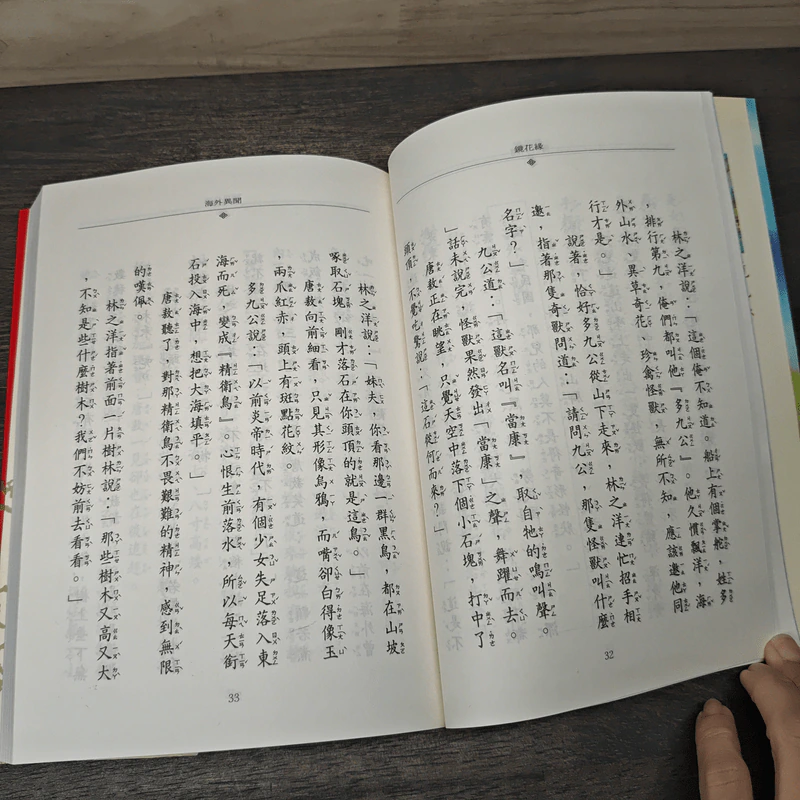 鏡花緣
林之洋說：「這個俺不知道。船上有個掌舵，姓多
，排行第九，俺們都叫他『多九公』。他久慣飄洋，海
外山水、異草奇花，珍禽怪獸，無所不知，應該邀他同
行才是。」
說著，恰好多九公從山下走來，林之洋連忙招手相
邀，指著那隻奇獸問道：「請問九公，那隻怪獸叫什麼
名字？」
九公道：「這獸名叫『當康』，取自牠的鳴叫聲。
」話未說完，怪獸果然發出「當康」之聲，舞躍而去。
唐敖正在眺望，只覺天空中落下個小石塊，打中了
頭頂，不覺吃驚說：「這石從何而來？」
32
海外異聞
林之洋說：「妹夫，你看那邊一群黑鳥，都在山坡
啄取石塊，剛才落石在你頭頂的就是這鳥。」
唐敖向前細看，只見其形像烏鴉，而嘴卻白得像玉
，兩爪紅赤，頭上有斑點花紋。
多九公說：「以前炎帝時代，有個少女失足落入東
海而死，變成『精衛鳥』。心恨生前落水，所以每天銜
石投入海中，想把大海填平。」
唐敖聽了，對那精衛鳥不畏艱難的精神，感到無限
的嘆佩。
林之洋指著前面一片樹林說：「那些樹木又高又大
，不知是些什麼樹木？我們不妨前去看看。」
33